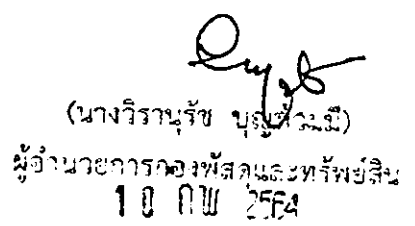 (นางวิรานุรัช
ผู้อำนวยการกองพัสดุและทรัพย์สิน
10 กพ 2564